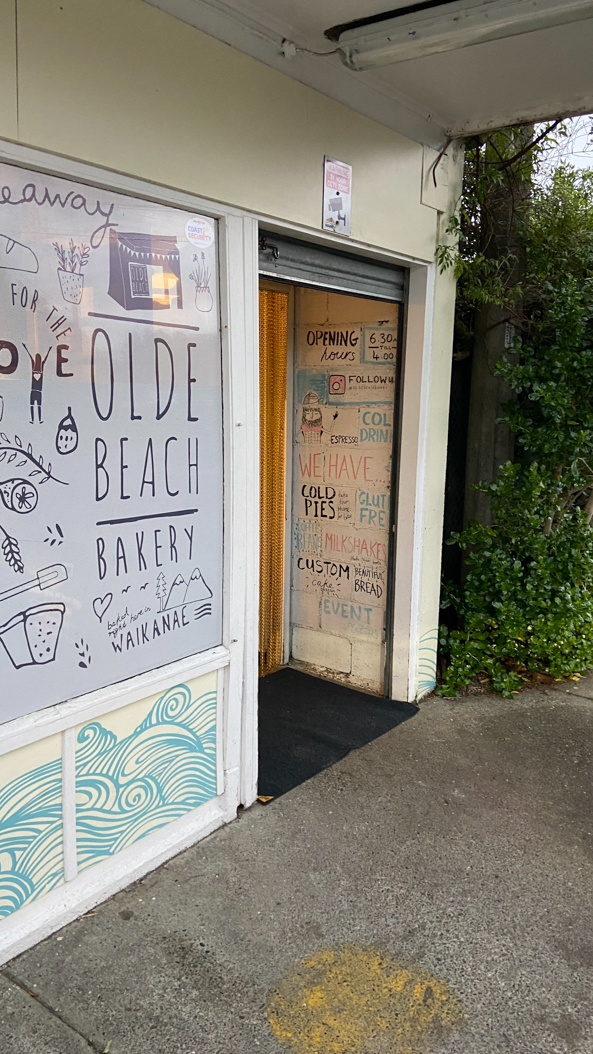 eaway
FOR THE
OVE
OLDE
BEACH
BAKERY
baked
right here in
WAIKANAE
COASTAL
SECURITY
OLDE
BEACH
OPENING
hours
6.30
TILL
4.00
FOLLOW U
ESPRESSO
COL
DRIN
WE HAVE...
COLD
PIES
take
home
GLUT
FRE
MILKSHAKES
CUSTOM
cake
BEAUTIFUL
BREAD
EVENT